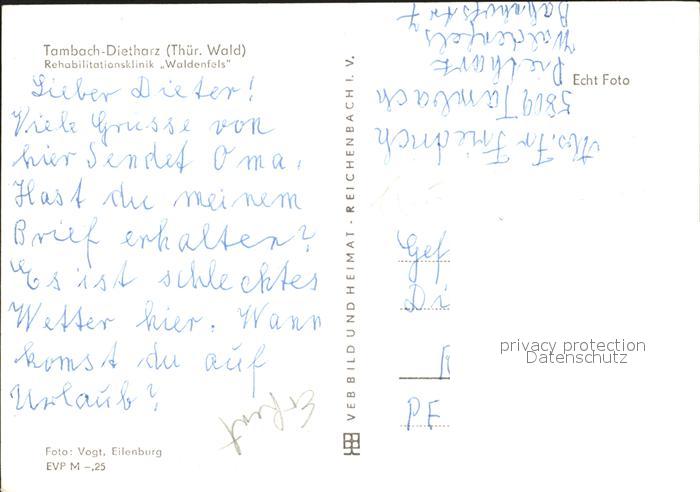 Tambach-Dietharz (Thür. Wald)
Rehabilitationsklinik „Waldenfels"
Lieber Dieter!
Viele Grusse von
hier Sendet Oma.
Hast du meinem
Brief erhalten?
Es ist schlecktes
Wetter hier. Wann
komst du auf
Urlaub?
Foto: Vogt, Eilenburg
EVP M –,25
VEB BILD UND HEIMAT · REICHENBACH I. V.
Echt Foto
Abs. Fr Friedrich
5809 Tambach
Dietharz
Waldenfels
Bahnhofstr 7
Gef
Di
PF
privacy protection
Datenschutz